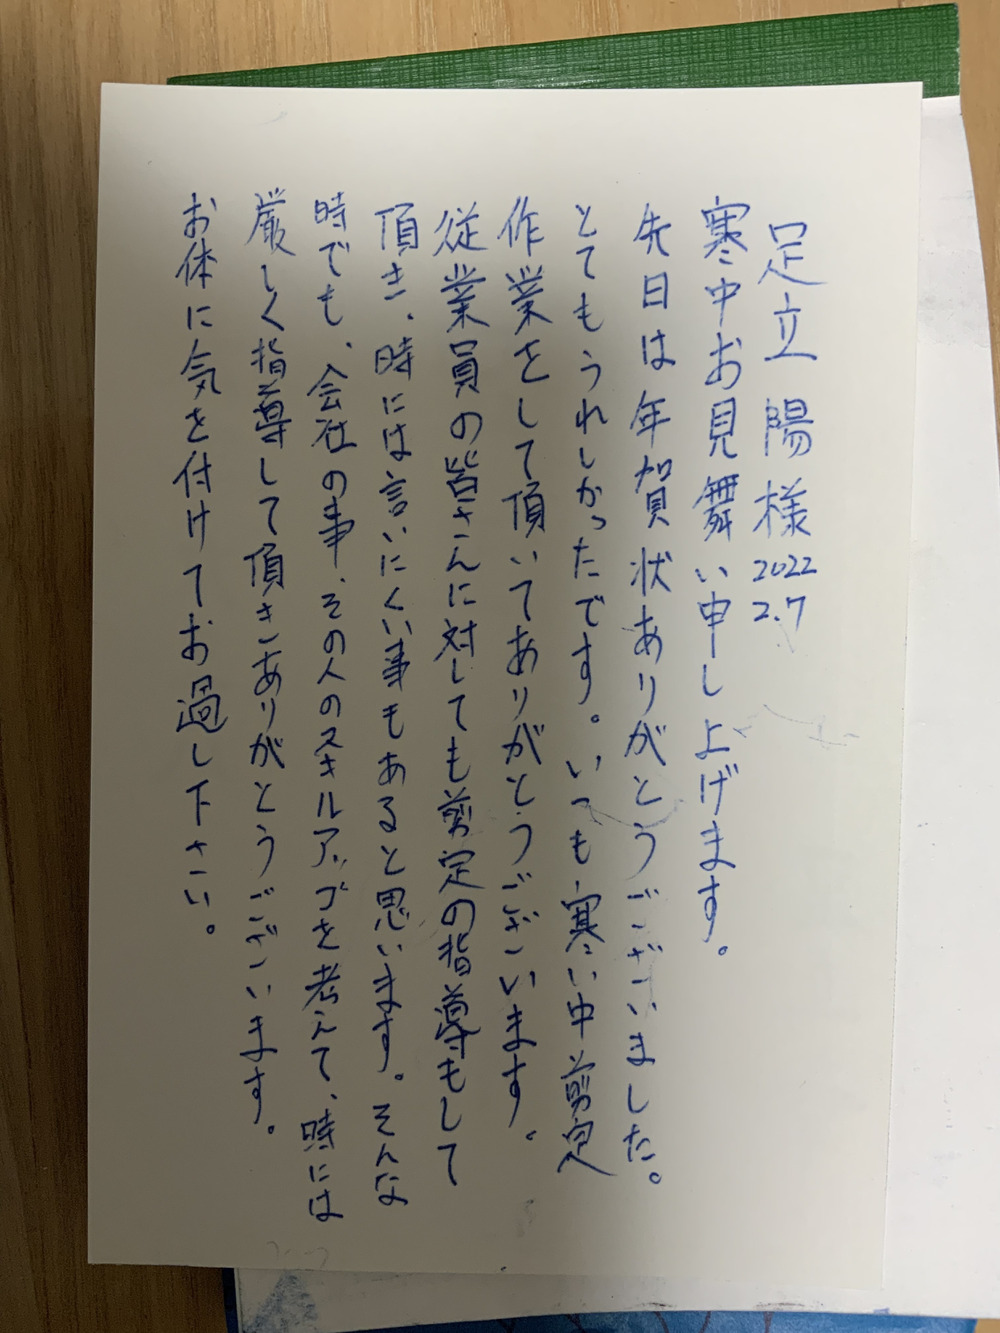 足立 陽様 2022 2.7
寒中お見舞い申し上げます。
先日は年賀状ありがとうございました。
とてもうれしかったです。いつも寒い中剪定
作業をして頂いてありがとうございます。
従業員の皆さんに対しても剪定の指導もして
頂き、時には言いにくい事もあると思います。そんな
時でも、会社の事、その人のスキルアップを考えて、時には
厳しく指導して頂きありがとうございます。
お体に気を付けてお過し下さい。